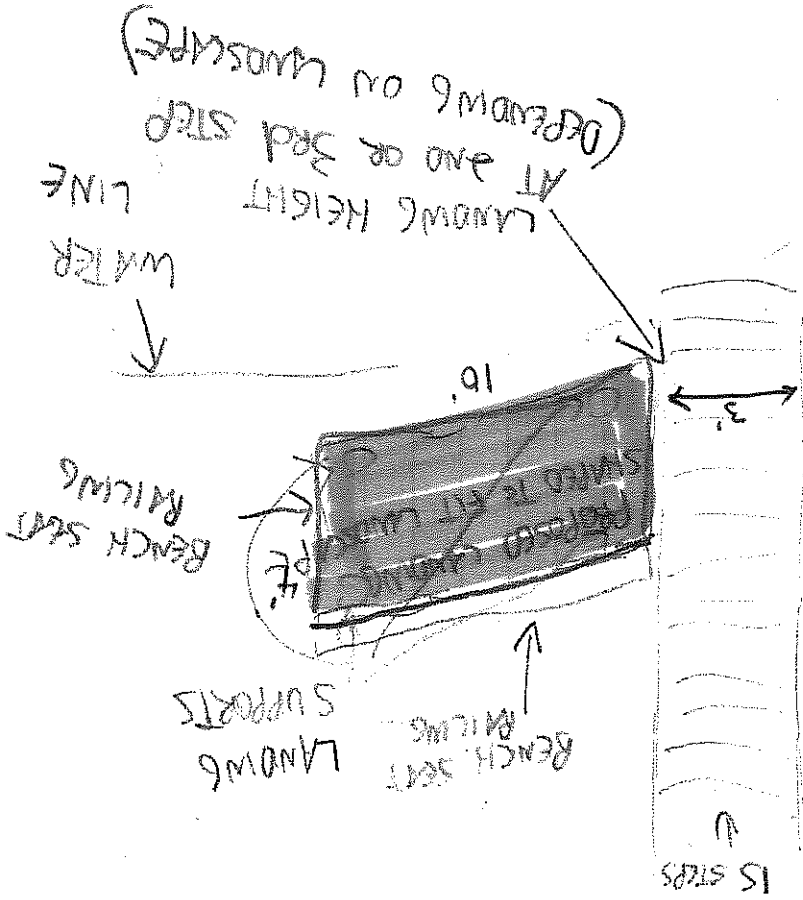 15 STEPS
BENCH SEAT
RAILING
LANDING
SUPPORTS
PROPOSED LANDING
SHAPED TO FIT LANDSCAPE
4'
BENCH SEAT
RAILING
3'
10'
WATER
LINE
LANDING HEIGHT
AT 2ND OR 3Rd STEP
(DEPENDING ON LANDSCAPE)